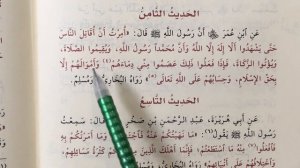 الحديث الثامن
عَنِ ابْنِ عُمَرَ أَنَّ رَسُولَ اللَّهِ ﷺ قَالَ: «أُمِرْتُ أَنْ أُقَاتِلَ النَّاسَ
حَتَّى يَشْهَدُوا أَلَّا إِلَهَ إِلَّا اللَّهُ وَأَنَّ مُحَمَّدًا رَسُولُ اللَّهِ، وَيُقِيمُوا الصَّلَاةَ،
وَيُؤْتُوا الزَّكَاةَ، فَإِذَا فَعَلُوا ذَلِكَ عَصَمُوا مِنِّي دِمَاءَهُمْ وَأَمْوَالَهُمْ إِلَّا
بِحَقِّ الْإِسْلَامِ، وَحِسَابُهُمْ عَلَى اللَّهِ تَعَالَى» رَوَاهُ الْبُخَارِيُّ، وَمُسْلِمٌ.
الحديث التاسع
عَنْ أَبِي هُرَيْرَةَ، عَبْدِ الرَّحْمَنِ بْنِ صَخْرٍ قَالَ: سَمِعْتُ
رَسُولَ اللَّهِ ﷺ يَقُولُ: «مَا نَهَيْتُكُمْ عَنْهُ فَاجْتَنِبُوهُ، وَمَا أَمَرْتُكُمْ بِهِ
مِنْ قَبْلِكُمْ كَثْرَةُ مَسَائِلِهِمْ،